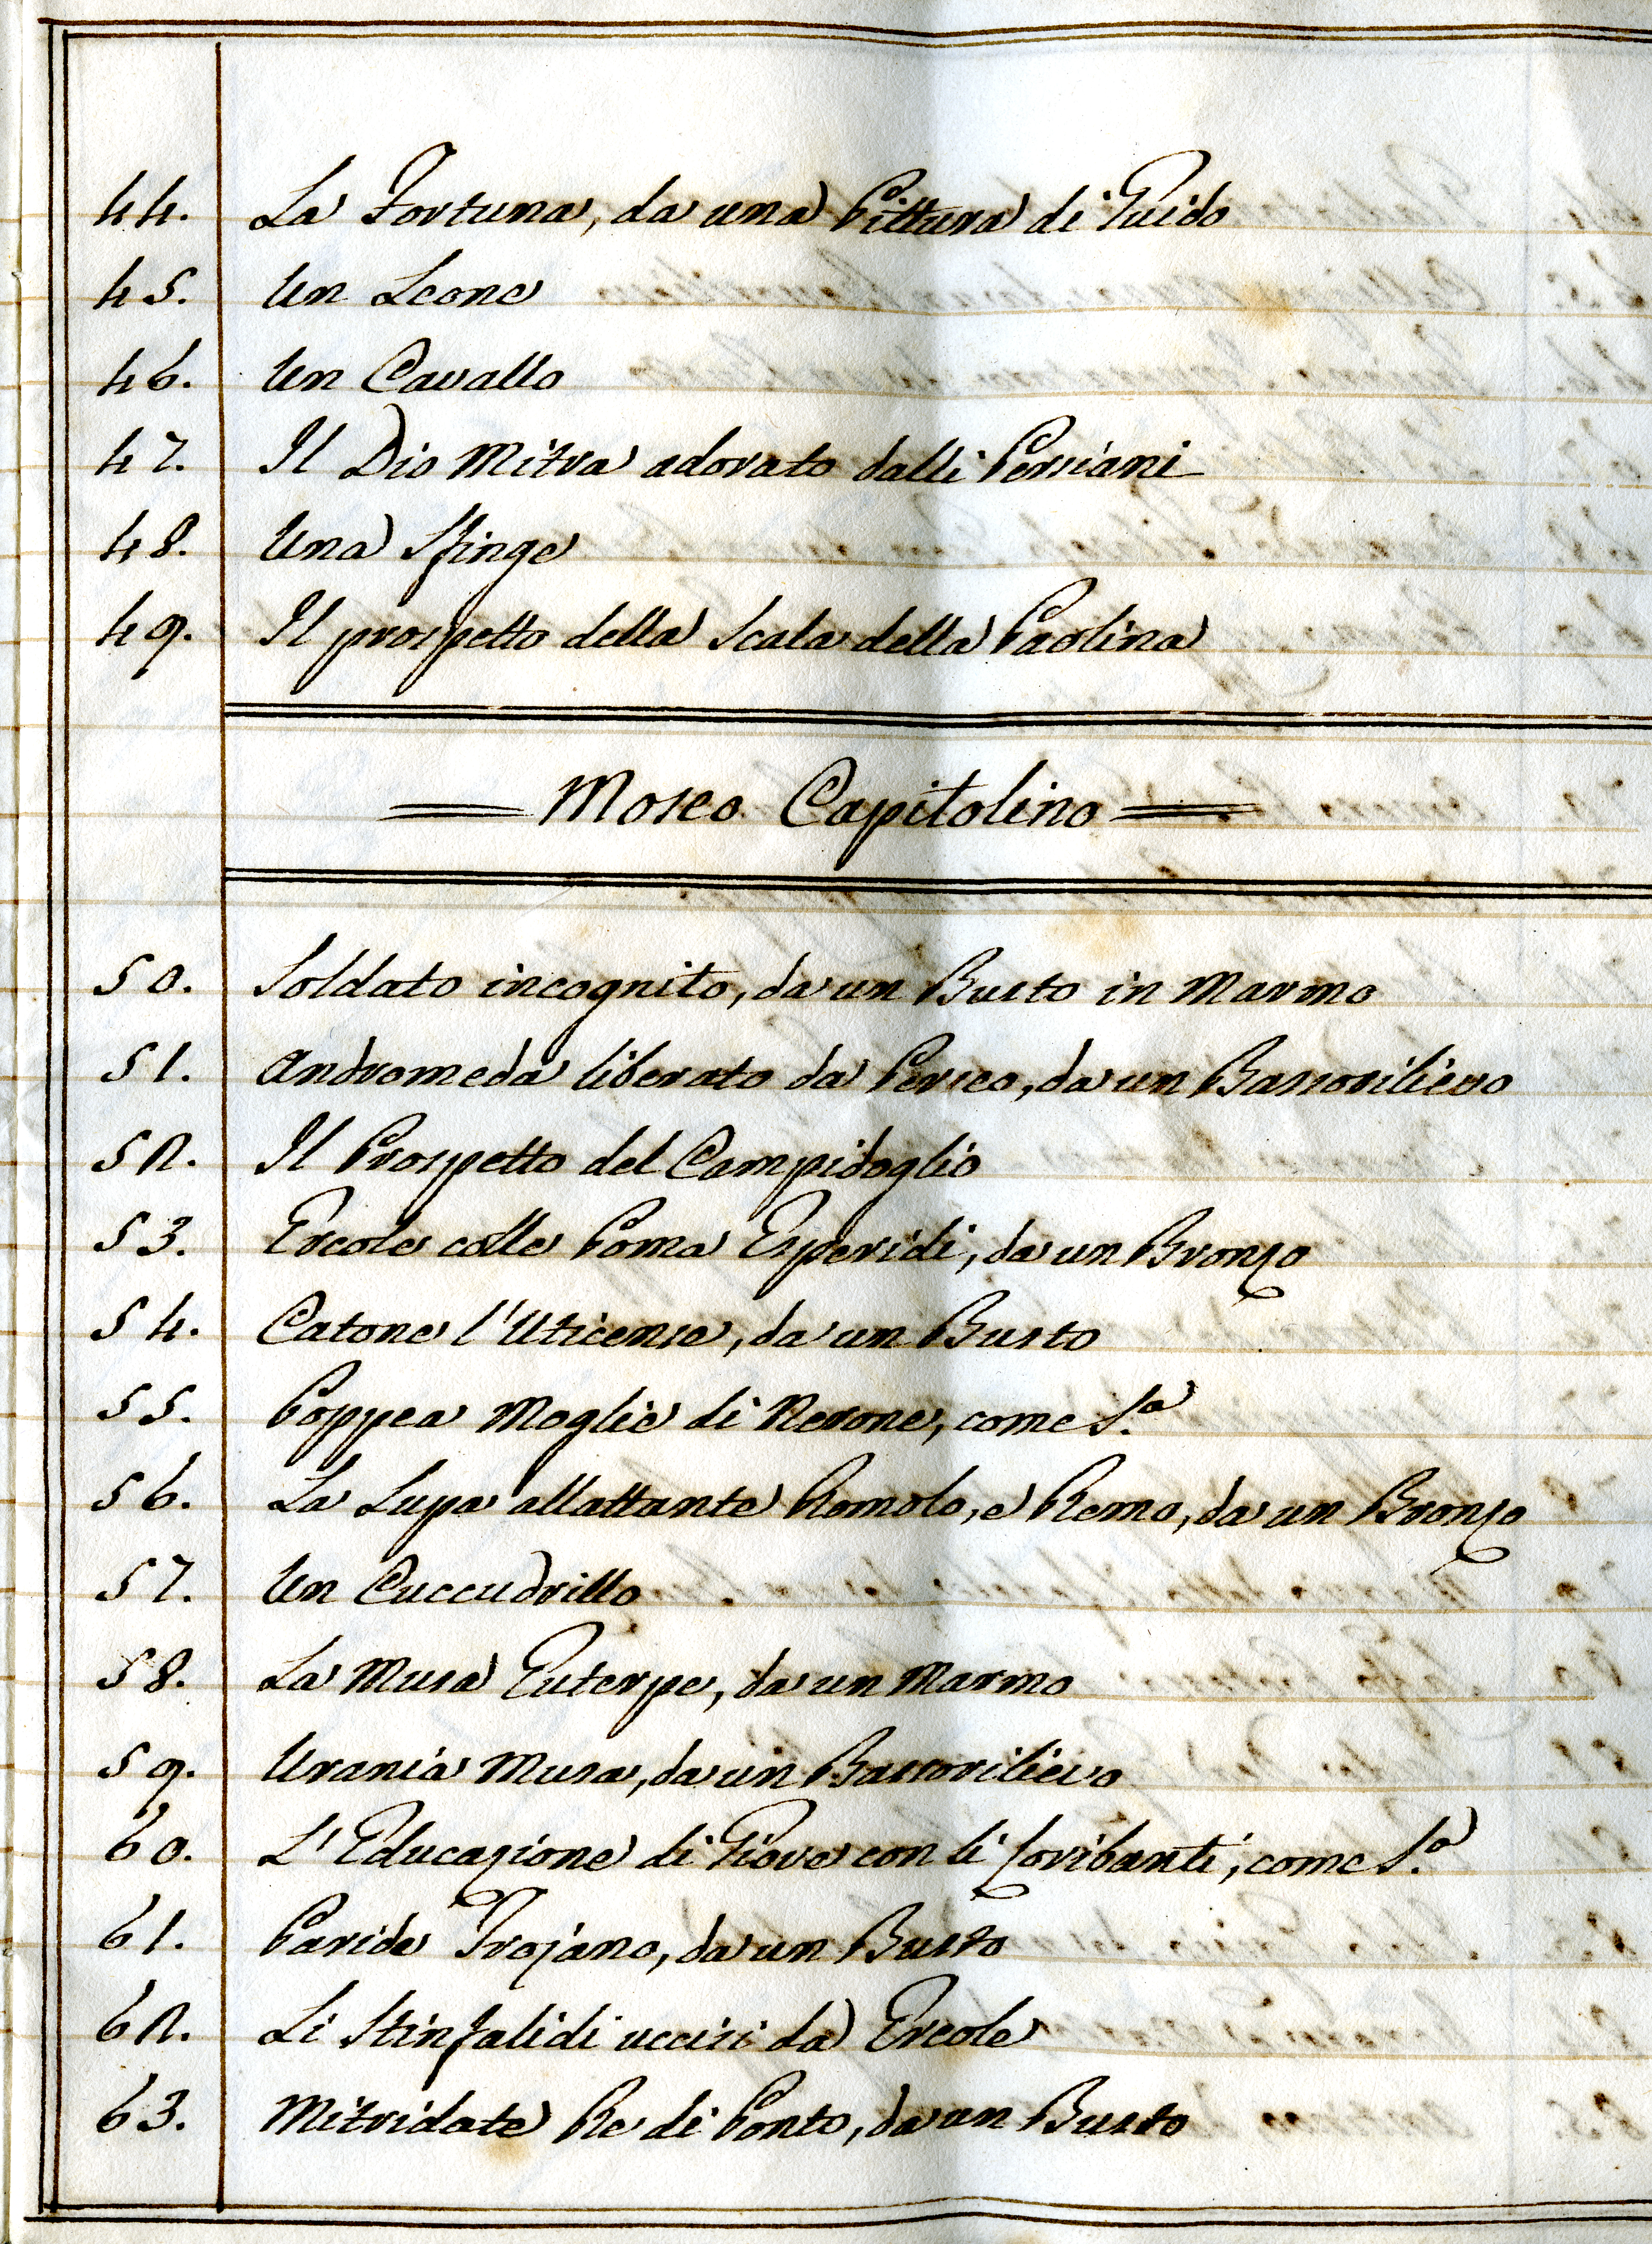 44. La Fortuna, da una Pittura di Guido
45. Un Leone
46. Un Cavallo
47. Il Dio Mitra adorato dalli Persiani
48. Una Sfinge
49. Il prospetto della Scala della Paolina
Moseo Capitolino
50. Soldato incognito, da un Busto in Marmo
51. Andromeda liberato da Perseo, da un Bassorilievo
52. Il Prospetto del Campidoglio
53. Ercole colle Poma Esperidi, da un Bronzo
54. Catone l'Uticense, da un Busto
55. Poppea Moglie di Nerone, come S.a
56. La Lupa allattante Romolo, e Remo, da un Bronzo
57. Un Cuccudrillo
58. La Musa Euterpe, da un Marmo
59. Urania Musa, da un Bassorilievo
60. L'Educazione di Giove con li Coribanti, come S.a
61. Paride Trojano, da un Busto
62. Li Stinfalidi uccisi da Ercole
63. Mitridate Re di Ponto, da un Busto